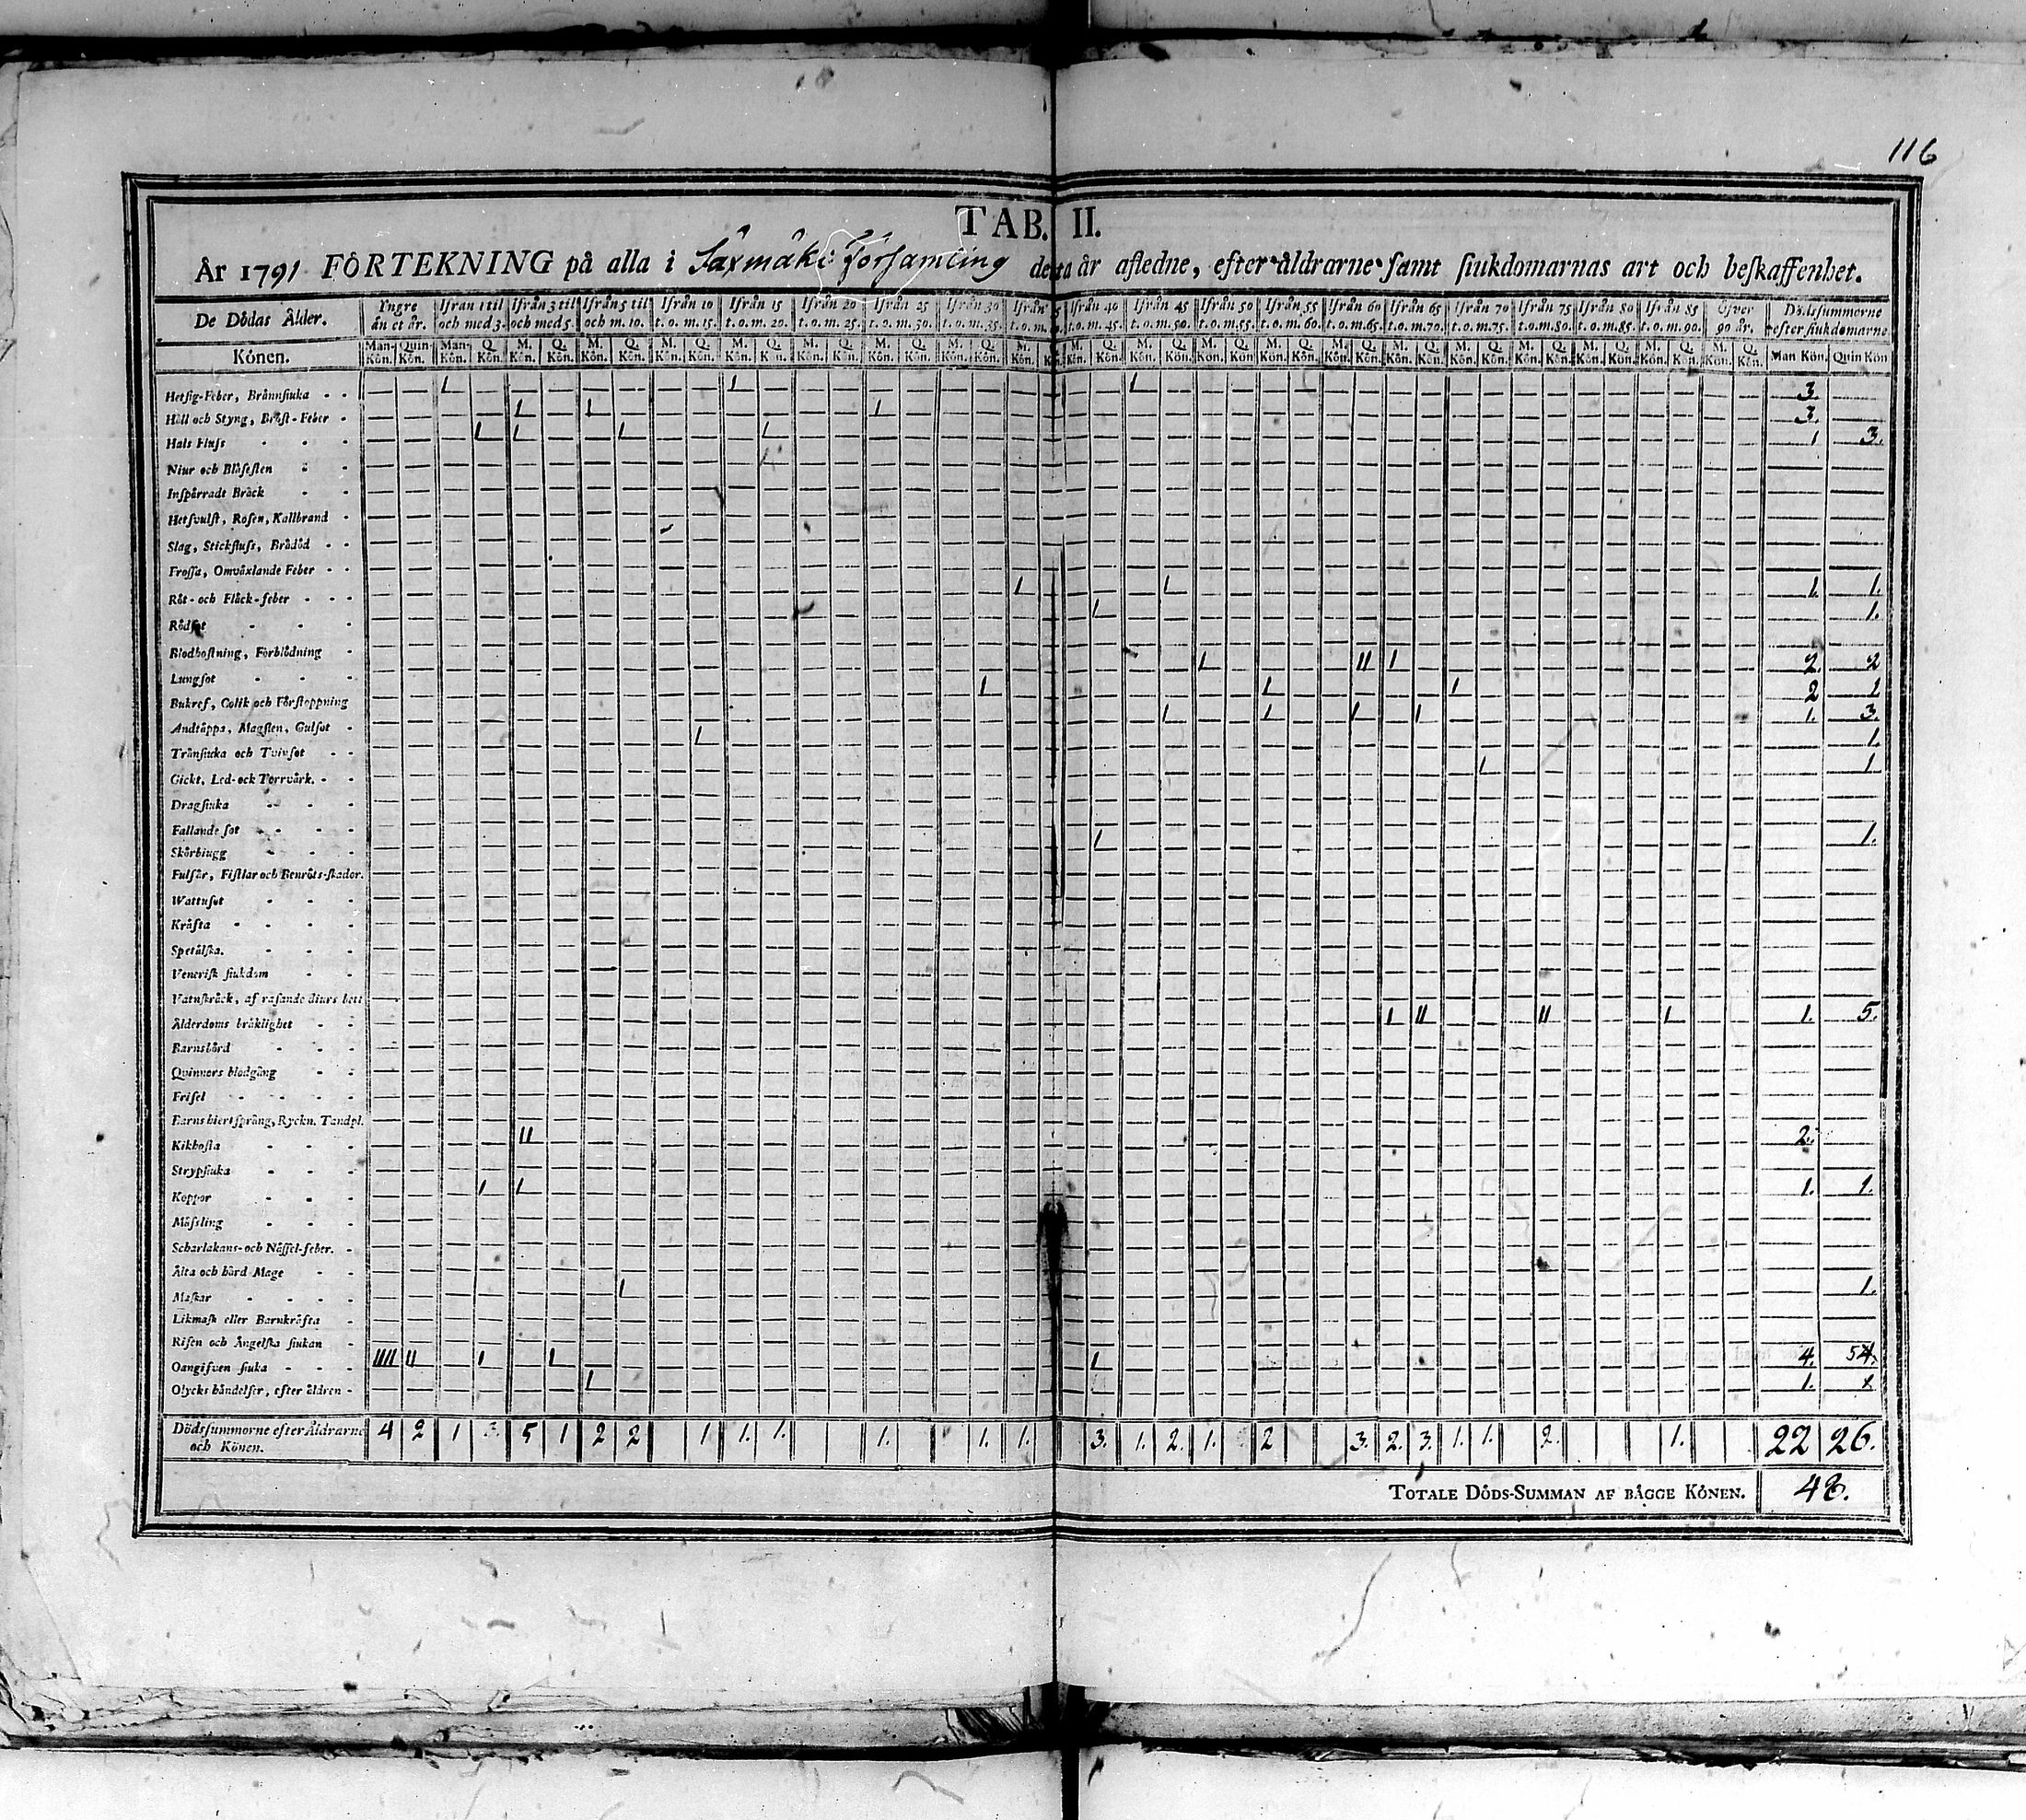 116
TAB. II.
År 1791 FÖRTEKNING på alla i Saxmäki Församling detta år afledne, efter åldrarne samt siukdomarnas art och beskaffenhet.
De Dödas Ålder. Yngre än et år. Ifrån 1 til och med 3. Ifrån 3 til och med 5. Ifrån 5 til och m. 10. Ifrån 10 t.o.m. 15. Ifrån 15 t.o.m. 20. Ifrån 20 t.o.m. 25. Ifrån 25 t.o.m. 30. Ifrån 30 t.o.m. 35. Ifrån t.o.m. Ifrån 40 t.o.m. 45. Ifrån 45 t.o.m. 50. Ifrån 50 t.o.m. 55. Ifrån 55 t.o.m. 60. Ifrån 60 t.o.m. 65. Ifrån 65 t.o.m. 70. Ifrån 70 t.o.m. 75. Ifrån 75 t.o.m. 80. Ifrån 80 t.o.m. 85. Ifrån 85 t.o.m. 90. Öfver 90 år. Dödssummorne efter siukdomarne
Könen. Man-Kön. Quin-Kön. Man-Kön. Q. Kön. M. Kön. Q. Kön. M. Kön. Q. Kön. M. Kön. Q. Kön. M. Kön. Q. Kön. M. Kön. Q. Kön. M. Kön. Q. Kön. M. Kön. Q. Kön. M. Kön. M. Kön. Q. Kön. M. Kön. Q. Kön. M. Kön. Q. Kön. M. Kön. Q. Kön. M. Kön. Q. Kön. M. Kön. Q. Kön. M. Kön. Q. Kön. M. Kön. Q. Kön. M. Kön. Q. Kön. M. Kön. Q. Kön. M. Kön. Q. Kön. Man Kön. Quin Kön
Hetsig-Feber, Brännsiuka - - 1 1 1 3. —
Håll och Styng, Bröst-Feber - 1 1 1 3. —
Hals Fluss - - - 1 1 1 1 1 3.
Niur och Blåsesten - -
Inspärradt Bråck - -
Hetsvulst, Rosen, Kallbrand -
Slag, Stickfluss, Brådöd - -
Frossa, Omväxlande Feber - -
Röt- och Fläck-feber - - - 1 1 1. 1.
Rödsot - - - 1 1.
Blodhostning, Förblödning -
Lungsot - - - 1 11 1 2. 2
Bukref, Colik och Förstoppning 1 1 1 2 1
Andtäppa, Magsten, Gulsot - 1 1 1 1 1. 3.
Trånsiucka och Tvinsot - - 1 1.
Gickt, Led- ock Torrvärk. - - 1 1
Dragsiuka - - -
Fallande sot - - - -
Skörbiugg - - - 1 1.
Fulsår, Fistlar och Benröts-skador.
Wattusot - - -
Kräfta - - - -
Spetälska. - - -
Venerisk siukdom - -
Vatnskräck, af rasande diurs bett
Ålderdoms bräklighet - - 1 11 11 1 1. 5.
Barnsbörd - - -
Quinnors blodgång - -
Frisel - - - -
Barns hiertsprång, Ryckn. Tandpl.
Kikhosta - - - 11 2. —
Strypsiuka - - -
Koppor - - - 1 1 1. 1.
Mässling - - -
Scharlakans- och Nässel-feber. -
Älta och hård Mage - -
Maskar - - - - 1 1.
Likmask eller Barnkräfta -
Risen och Ängelska siukan -
Oangifven siuka - - - 1111 11 1 1 1 4. 5
Olycks händelser, efter åldren - 1 1.
Dödssummorne efter Åldrarne och Könen. 4 2 1 3. 5 1 2 2 1 1. 1. 1. 1. 1. 3. 1. 2. 1. 2 3. 2. 3. 1. 1. 2. 1. 22 26.
TOTALE DÖDS-SUMMAN AF BÄGGE KÖNEN. 48.